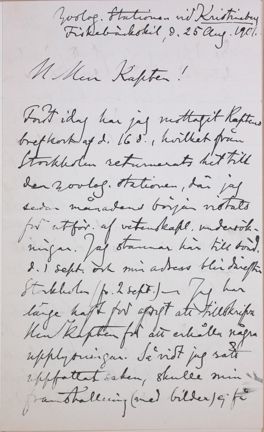 Zoolog. Stationen vid Kristineberg
Fiskebäckskil, d. 25 Aug. 1901.
H. Herr Kapten!
Först idag har jag mottagit Kaptens
brefkort af d. 16 d., hvilket från
Stockholm returnerats hit till
den zoolog. stationen, där jag
sedan månadens början vistats
för utför. af vetenskapl. undersök-
ningar. Jag stannar här till
d. 1 sept. och min adress blir därefter
Stockholm (fr. 2 sept.). Jag har
länge haft för afsigt att tillskrifva
Herr Kapten för att erhålla några
upplysningar. Så vidt jag rätt
uppfattat saken, skulle min
framställning (med bilder) ej få